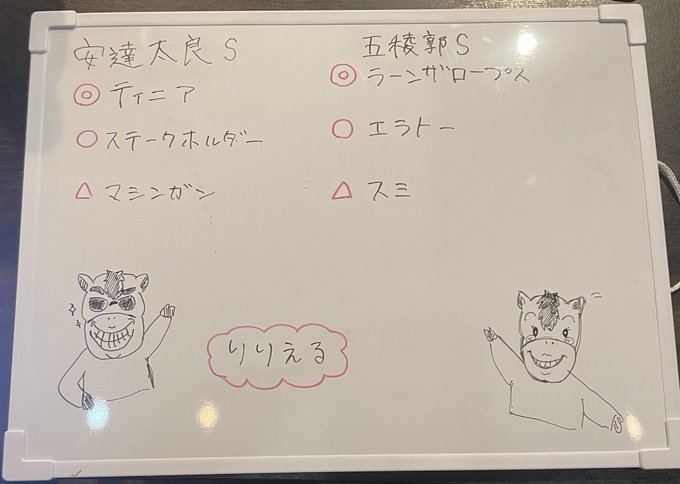 安達太良S
◎ ティニア
○ ステークホルダー
△ マシンガン
五稜郭S
◎ ラーンザロープス
○ エラトー
△ スミ
りりえる